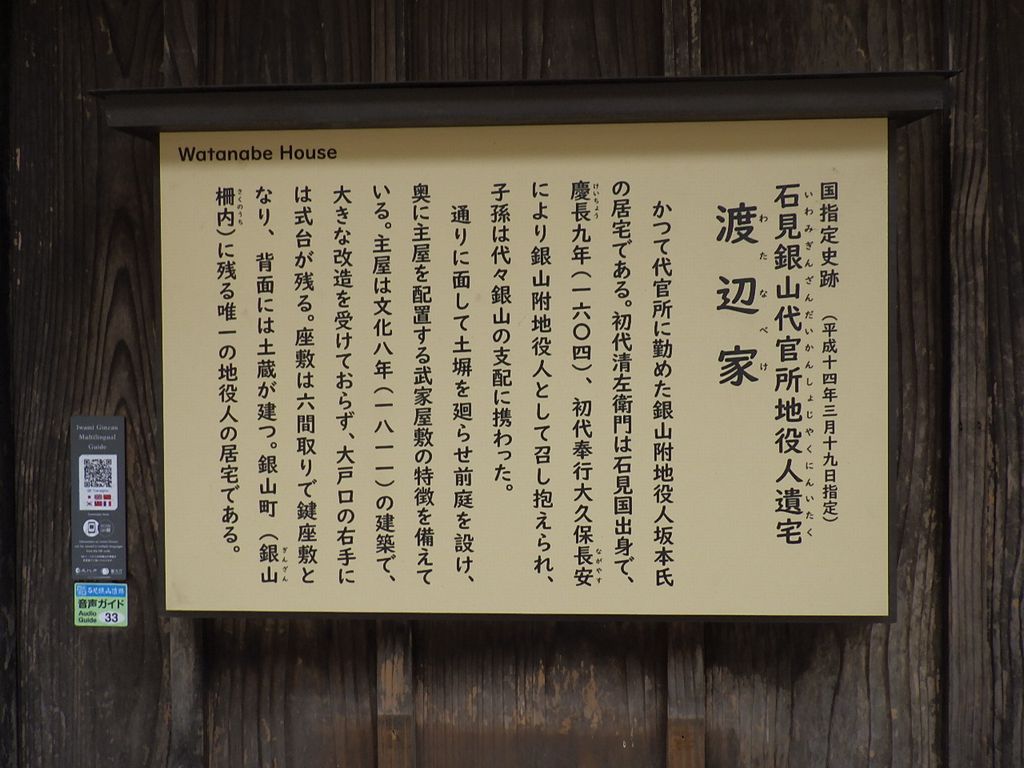 Watanabe House
国指定史跡 (平成十四年三月十九日指定)
石見銀山代官所地役人遺宅
いわみぎんざんだいかんしょじやくにんいたく
渡辺家
わたなべけ
かつて代官所に勤めた銀山附地役人坂本氏
の居宅である。初代清左衛門は石見国出身で、
慶長九年(一六〇四)、初代奉行大久保長安
けいちょう
ながやす
により銀山附地役人として召し抱えられ、
子孫は代々銀山の支配に携わった。
通りに面して土塀を廻らせ前庭を設け、
奥に主屋を配置する武家屋敷の特徴を備えて
いる。主屋は文化八年(一八一一)の建築で、
大きな改造を受けておらず、大戸口の右手に
は式台が残る。座敷は六間取りで鍵座敷と
なり、背面には土蔵が建つ。銀山町(銀山
ぎんざん
柵内)に残る唯一の地役人の居宅である。
さくのうち
Iwami Ginzan
Multilingual
Guide
石見銀山遺跡
音声ガイド
Audio
Guide 33